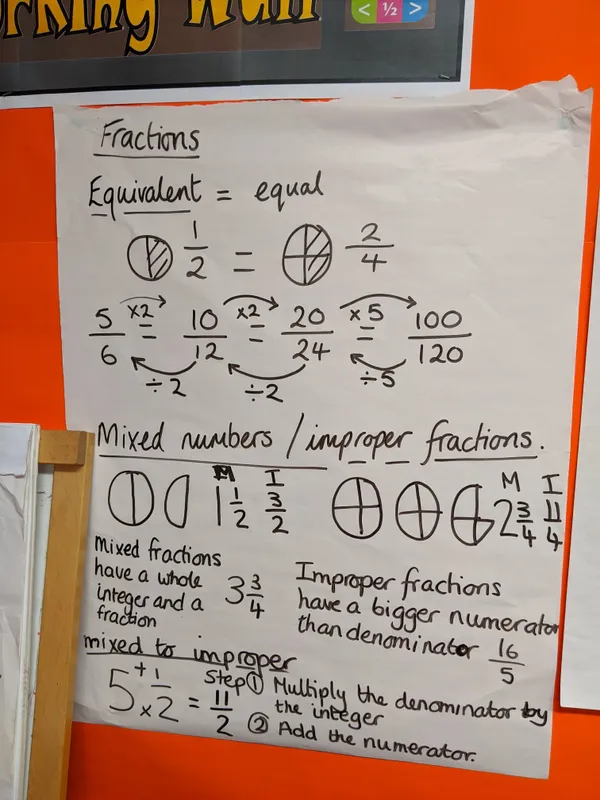 orking Wall
< ½ >
Fractions
Equivalent = equal
1/2 = 2/4
×2 ×2 ×5
5/6 = 10/12 = 20/24 = 100/120
÷2 ÷2 ÷5
Mixed numbers / improper fractions.
M I M I
1 1/2 3/2 2 3/4 11/4
Mixed fractions
have a whole
integer and a
fraction
3 3/4
Improper fractions
have a bigger numerator
than denominator 16/5
mixed to improper
5 + 1/2 × = 11/2
Step ① Multiply the denominator by
the integer
② Add the numerator.